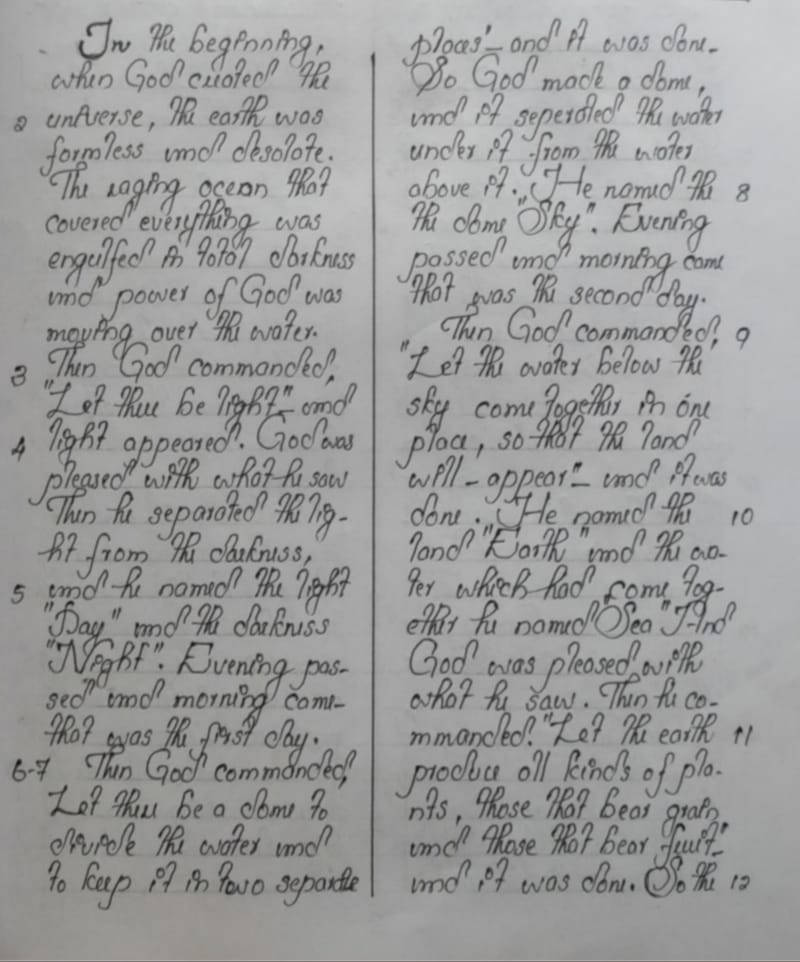 In the beginning,
when God created the
2 universe, the earth was
formless and desolate.
The raging ocean that
covered everything was
engulfed in total darkness
and power of God was
moving over the water.
3 Then God commanded,
"Let there be light"_ and
4 light appeared. God was
pleased with what he saw
Then he separated the lig-
ht from the darkness,
5 and he named the light
"Day" and the darkness
"Night". Evening pas-
sed and morning came_
that was the first day.
6-7 Then God commanded,
Let there be a dome to
divide the water and
to keep it in two separate
places'_ and it was done_
So God made a dome,
and it seperated the water
under it from the water
above it. He named the 8
the dome "Sky". Evening
passed and morning came
that was the second day.
Then God commanded, 9
"Let the water below the
sky come together in one
place, so that the land
will_appear"_ and it was
done. He named the 10
land "Earth" and the wa-
ter which had come tog-
ether he named Sea" And
God was pleased with
what he saw. Then he co-
mmanded. "Let the earth 11
produce all kinds of pla-
nts, those that bear grain
and those that bear fruit"_
and it was done. So the 12